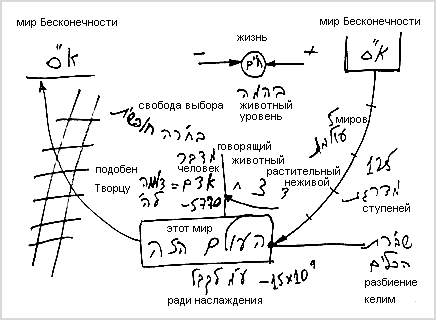 мир Бесконечности
мир Бесконечности
א"ס
א"ס
жизнь
− +
בהמה
животный
уровень
свобода выбора
בחירה חופשית
миров
עולמות
говорящий
животный
מדבר
человек
растительный
неживой
125
מדרגות
ступеней
подобен
Творцу
אדם = דומה
לה'
-5770
ח צ ד
этот мир
העולם הזה
שבירת
הכלים
разбиение
келим
ע"מ לקבל
-15x10⁹
ради наслаждения